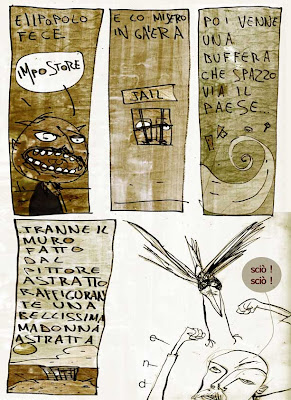 E IL POPOLO
FECE
IMPOSTORE
E LO MISERO
IN GALERA
JAIL
POI VENNE
UNA
BUFFERA
CHE SPAZZO
VIA IL
PAESE...
...TRANNE IL
MURO
FATTO
DAL
PITTORE
ASTRATTO
RAFFIGURAN
TE UNA
BELLISSIMA
MADONNA
ASTRATTA
sciò !
sciò !
end